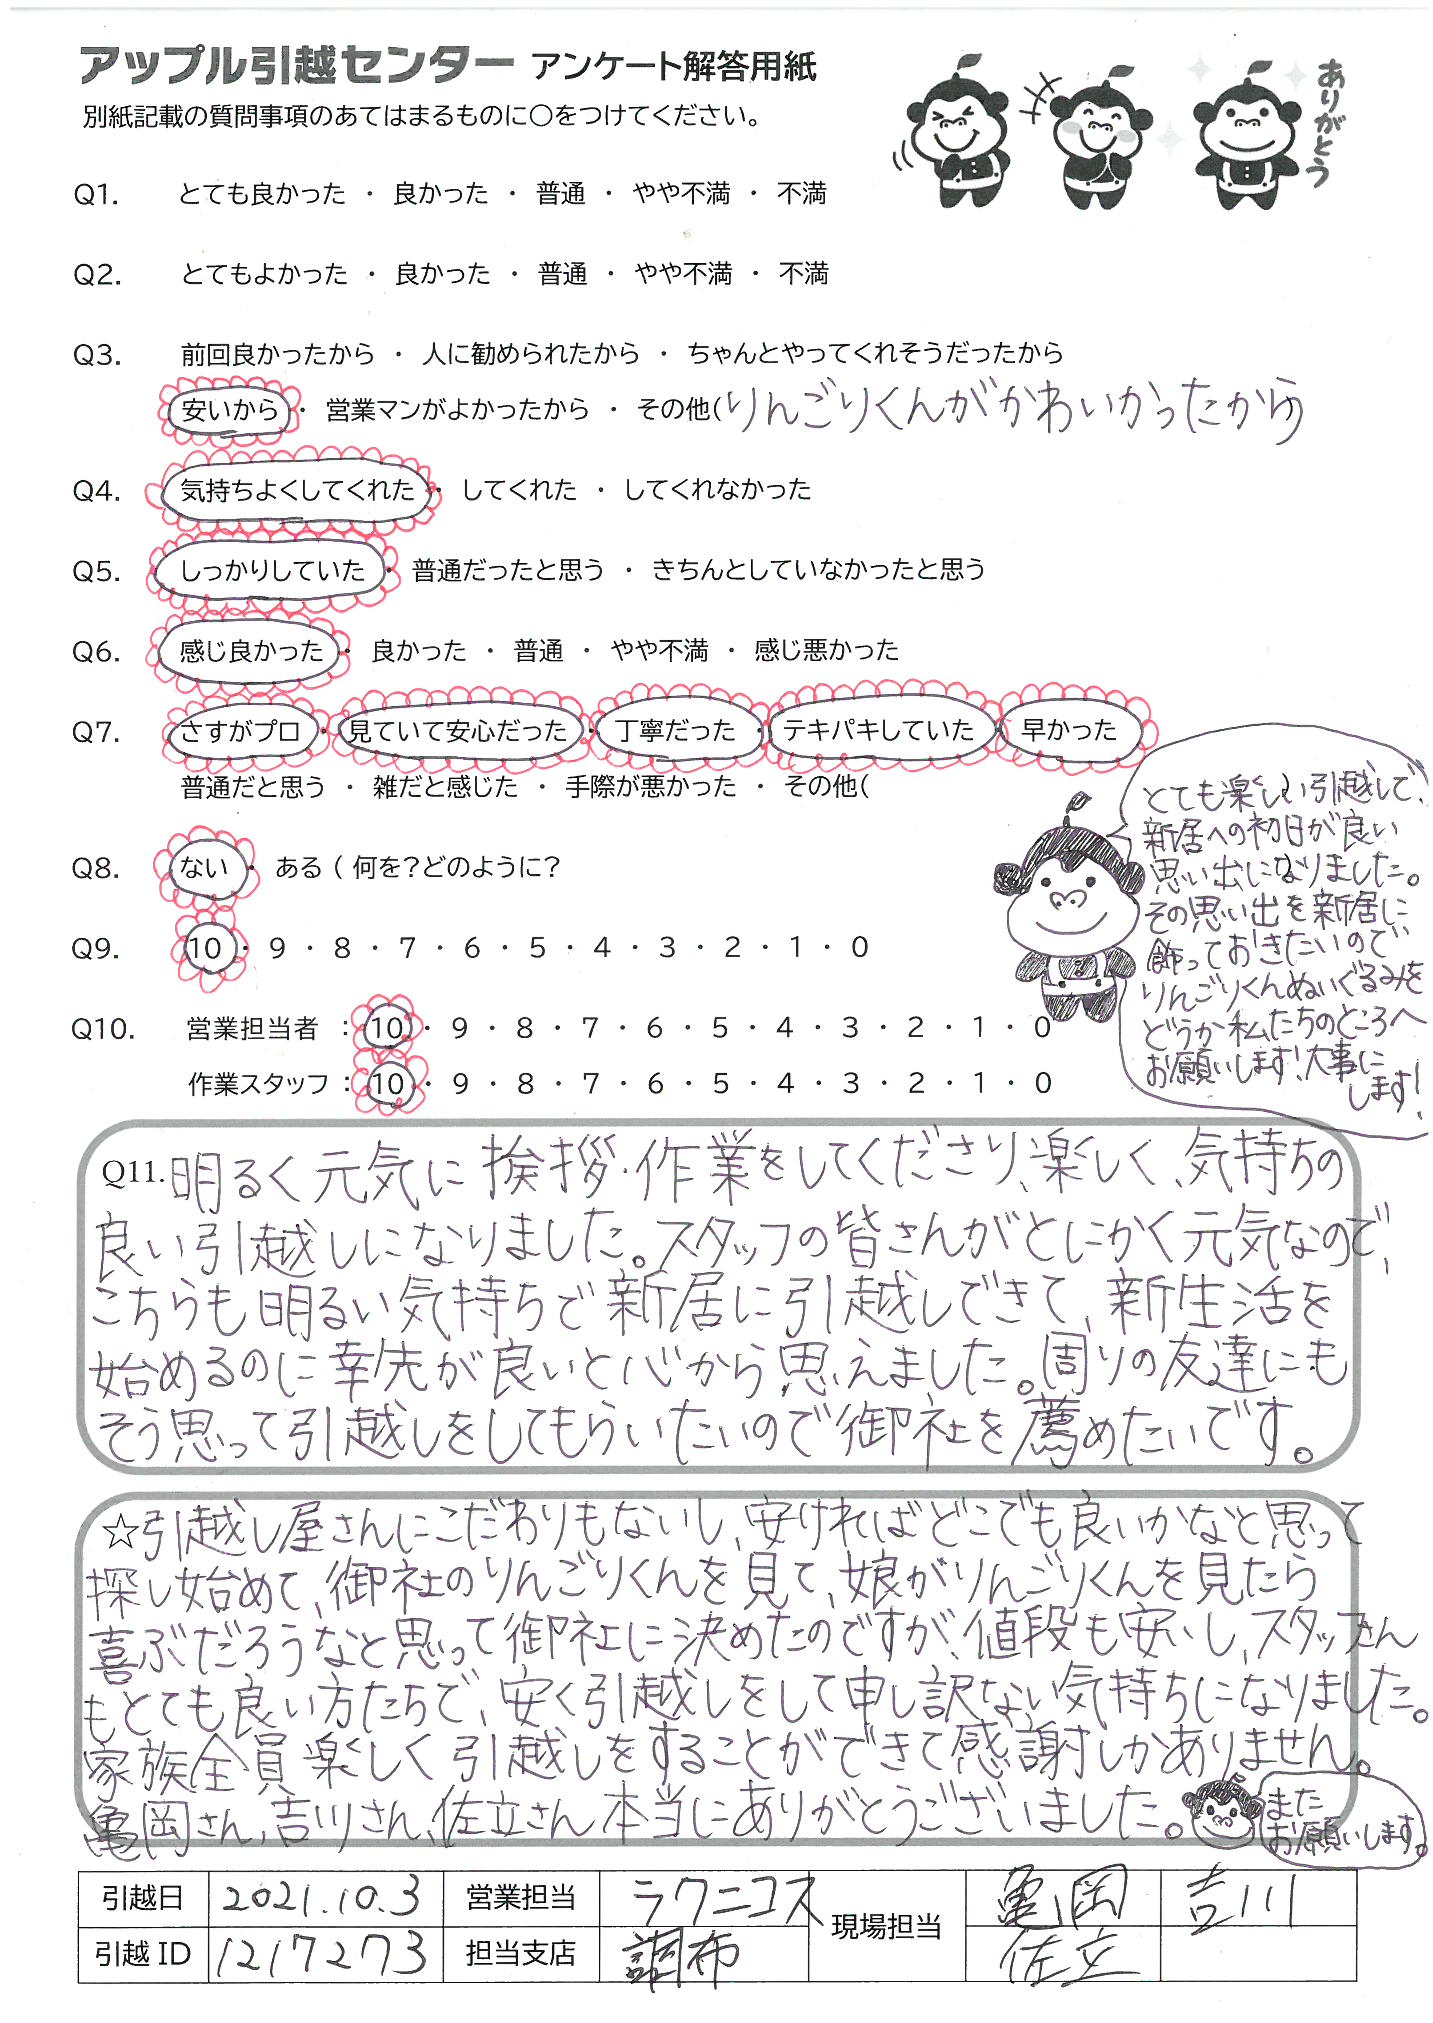 アップル引越センター アンケート解答用紙
別紙記載の質問事項のあてはまるものに〇をつけてください。
ありがとう
Q1. とても良かった ・ 良かった ・ 普通 ・ やや不満 ・ 不満
Q2. とてもよかった ・ 良かった ・ 普通 ・ やや不満 ・ 不満
Q3. 前回良かったから ・ 人に勧められたから ・ ちゃんとやってくれそうだったから
安いから ・ 営業マンがよかったから ・ その他(りんごりくんがかわいかったから)
Q4. 気持ちよくしてくれた ・ してくれた ・ してくれなかった
Q5. しっかりしていた ・ 普通だったと思う ・ きちんとしていなかったと思う
Q6. 感じ良かった ・ 良かった ・ 普通 ・ やや不満 ・ 感じ悪かった
Q7. さすがプロ ・ 見ていて安心だった ・ 丁寧だった ・ テキパキしていた ・ 早かった
普通だと思う ・ 雑だと感じた ・ 手際が悪かった ・ その他(
Q8. ない ・ ある ( 何を?どのように?
Q9. 10 ・ 9 ・ 8 ・ 7 ・ 6 ・ 5 ・ 4 ・ 3 ・ 2 ・ 1 ・ 0
Q10. 営業担当者 : 10 ・ 9 ・ 8 ・ 7 ・ 6 ・ 5 ・ 4 ・ 3 ・ 2 ・ 1 ・ 0
作業スタッフ : 10 ・ 9 ・ 8 ・ 7 ・ 6 ・ 5 ・ 4 ・ 3 ・ 2 ・ 1 ・ 0
とても楽しい引越しで、
新居への初日が良い
思い出になりました。
その思い出を新居に
飾っておきたいので
りんごりくんぬいぐるみを
どうか私たちのところへ
お願いします!大事に
します!
Q11.明るく元気に挨拶・作業をしてくださり、楽しく、気持ちの
良い引越しになりました。スタッフの皆さんがとにかく元気なので、
こちらも明るい気持ちで新居に引越しできて、新生活を
始めるのに幸先が良いと心から思えました。周りの友達にも
そう思って引越しをしてもらいたいので御社を薦めたいです。
☆引越し屋さんにこだわりもないし、安ければどこでも良いかなと思って
探し始めて、御社のりんごりくんを見て、娘がりんごりくんを見たら
喜ぶだろうなと思って御社に決めたのですが、値段も安いし、スタッフさん
もとても良い方たちで、安く引越しをして申し訳ない気持ちになりました。
家族全員楽しく引越しをすることができて感謝しかありません。
亀岡さん、吉川さん、佐立さん本当にありがとうございました。
また
お願いします。
引越日 2021.10.3 営業担当 ラクニコス 現場担当 亀岡 吉川
引越ID 1217273 担当支店 調布 佐立